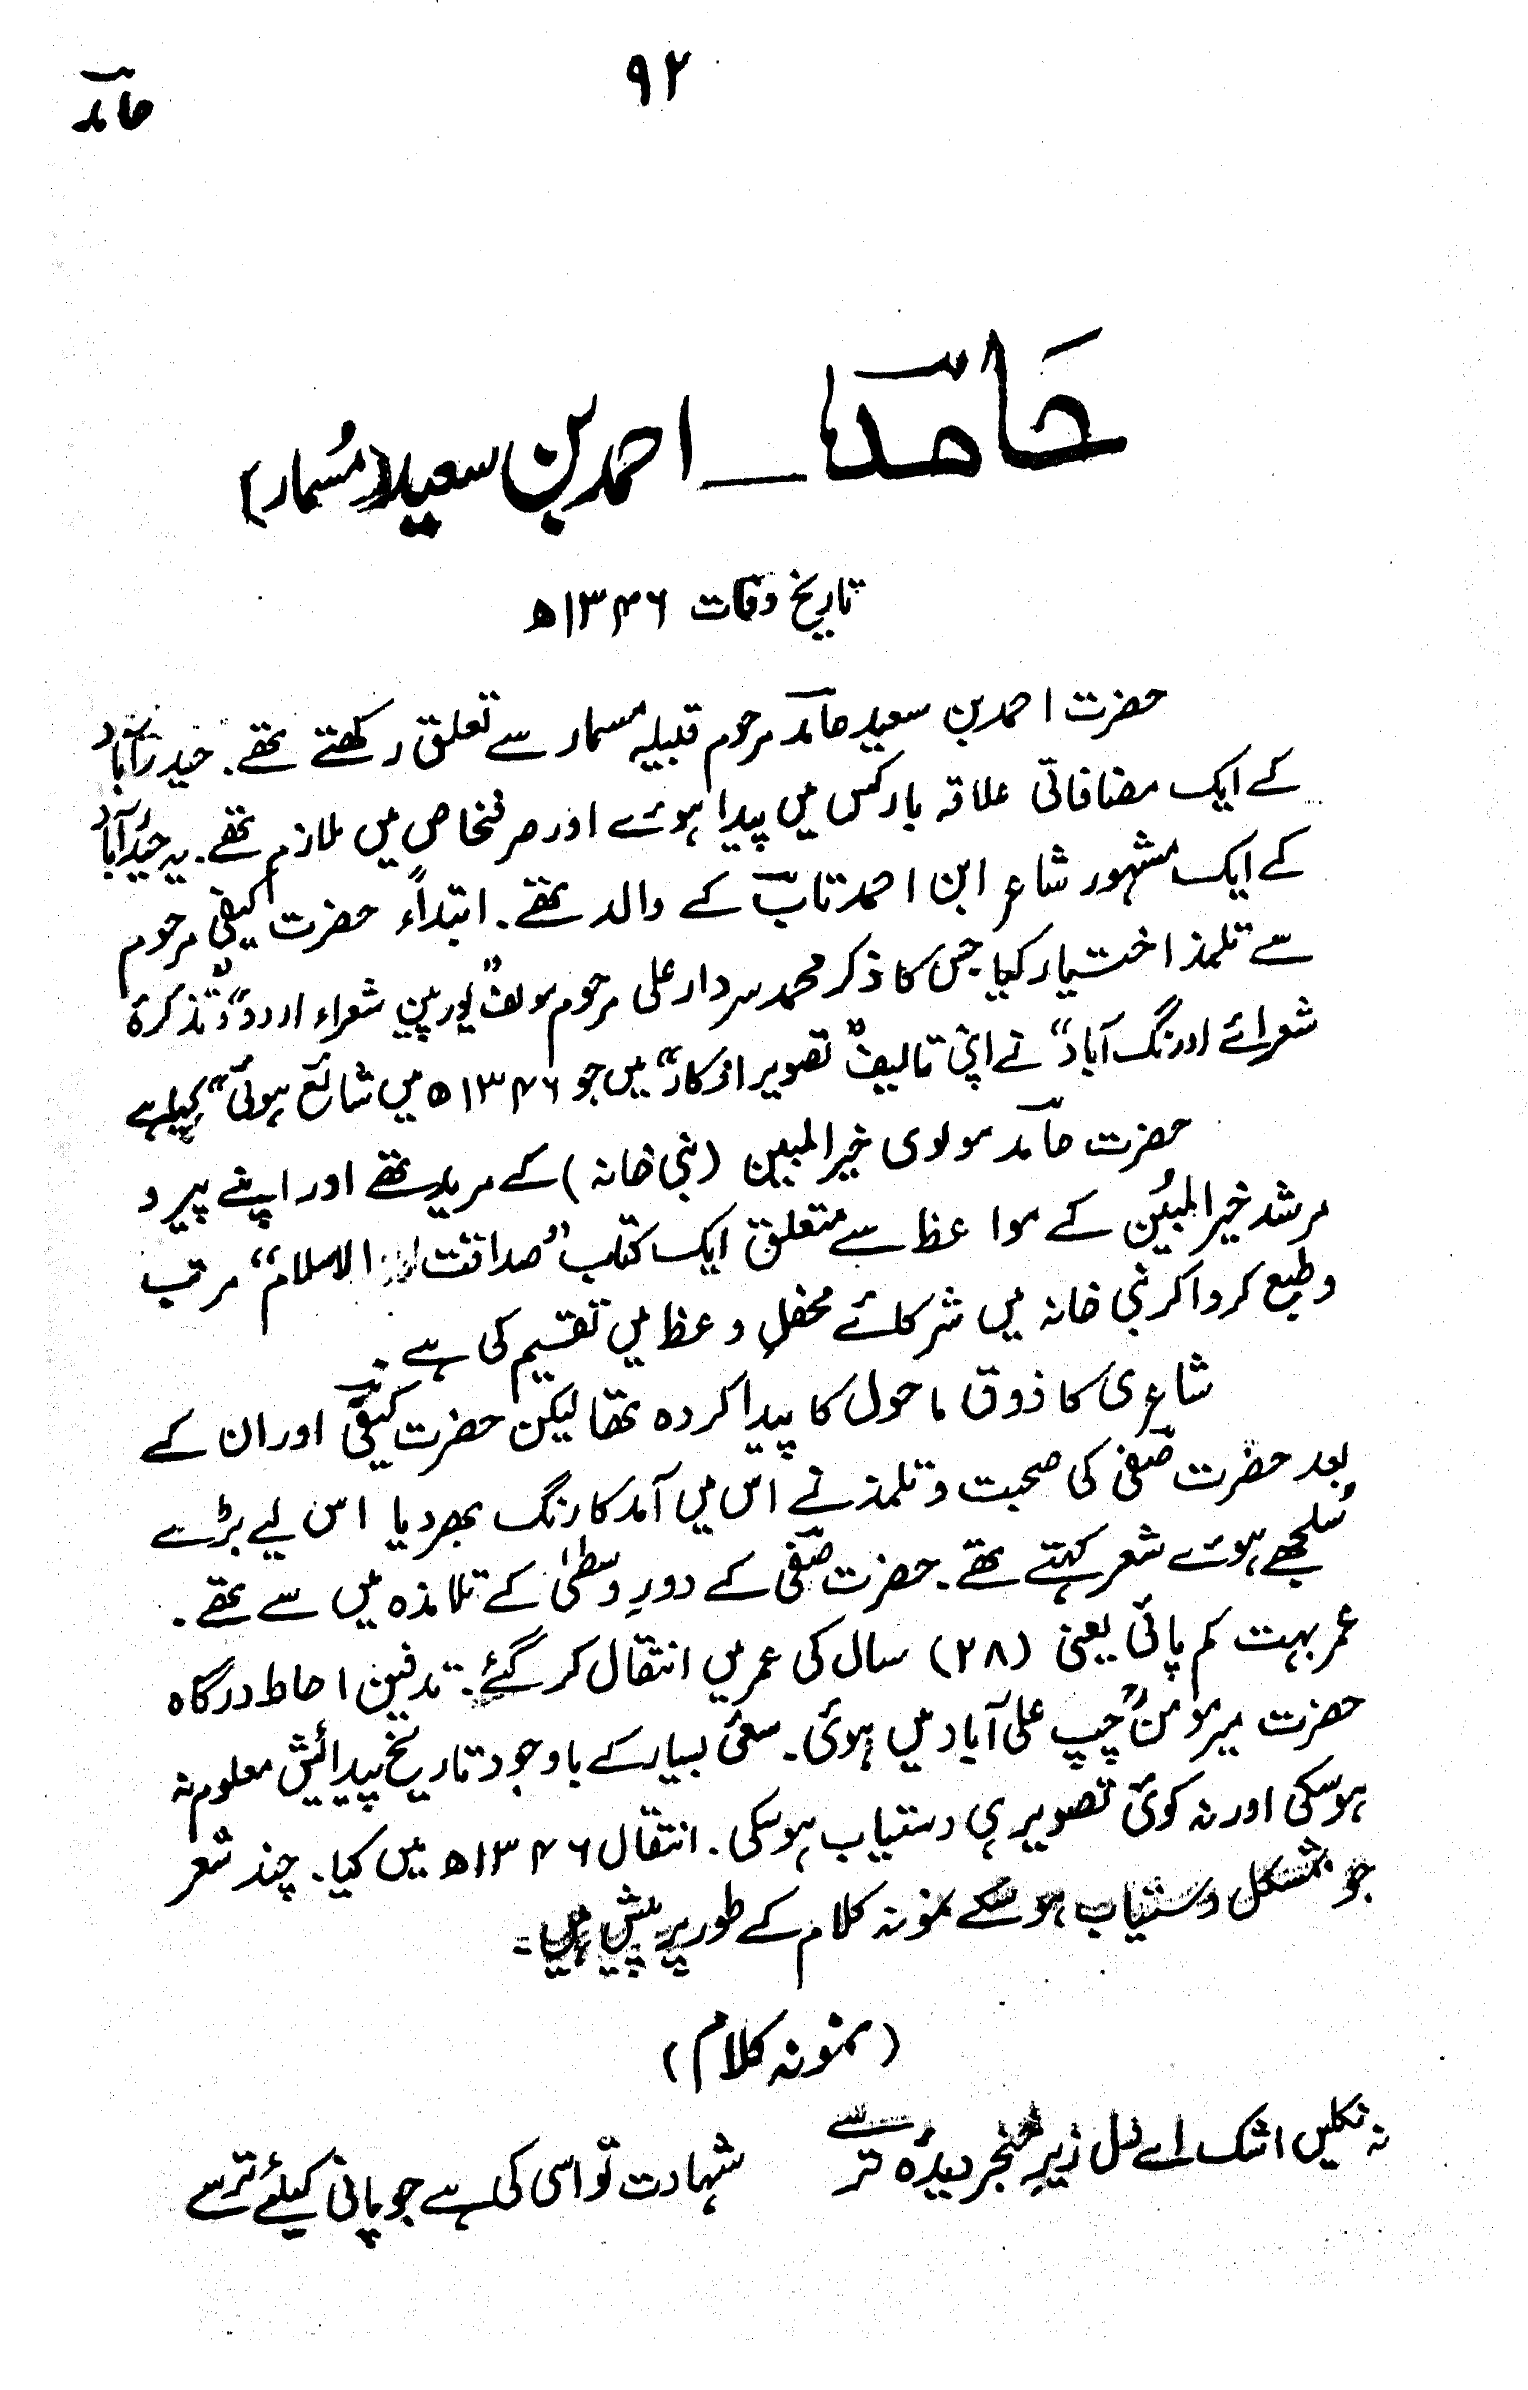 ۹۲
حامد
حامد ـ احمد بن سعید (مسمار)
تاریخ وفات ۱۳۴۶ھ
حضرت احمد بن سعید حامد مرحوم قبیلہ مسمار سے تعلق رکھتے تھے۔ حیدرآباد
کے ایک مضافاتی علاقہ بارکس میں پیدا ہوئے اور صرفخاص میں ملازم تھے۔ یہ حیدرآباد
کے ایک مشہور شاعر ابن احمد تاب کے والد تھے۔ ابتداً حضرت کیفی مرحوم
سے تلمذ اختیار کیا جس کا ذکر محمد سردار علی مرحوم مولف "یورپین شعراء اردو" و "تذکرۂ
شعرائے اورنگ آباد" نے اپنی تالیف "تصویر افکار" میں جو ۱۳۴۶ھ میں شائع ہوئی" کیا ہے
حضرت حامد مولوی خیر المبین (نبی خانہ) کے مرید تھے اور اپنے پیر و
مرشد خیر المبین کے مواعظ سے متعلق ایک کتاب "صداقت الاسلام" مرتب
و طبع کرواکر نبی خانہ میں شرکائے محفلِ وعظ میں تقسیم کی ہے۔
شاعری کا ذوق ماحول کا پیدا کردہ تھا لیکن حضرت کیفی اور ان کے
بعد حضرت صفی کی صحبت و تلمذ نے اس میں آمد کا رنگ بھر دیا اس لیے بڑے
سُلجھے ہوئے شعر کہتے تھے۔ حضرت صفی کے دورِ وسطیٰ کے تلامذہ میں سے تھے۔
عمر بہت کم پائی یعنی (۲۸) سال کی عمر میں انتقال کر گئے۔ تدفین احاطہ درگاہ
حضرت میر مومنؒ چپ علی آباد میں ہوئی۔ سعئی بسیار کے باوجود تاریخ پیدائش معلوم نہ
ہوسکی اور نہ کوئی تصویر ہی دستیاب ہوسکی۔ انتقال ۱۳۴۶ھ میں کیا۔ چند شعر
جو بمشکل دستیاب ہوسکے نمونہ کلام کے طور پر پیش ہیں۔
(نمونہ کلام)
نہ نکلیں اشک اے دل زیرِ خنجر دیدۂ تر سے    شہادت تو اسی کی ہے جو پانی کیلئے ترسے